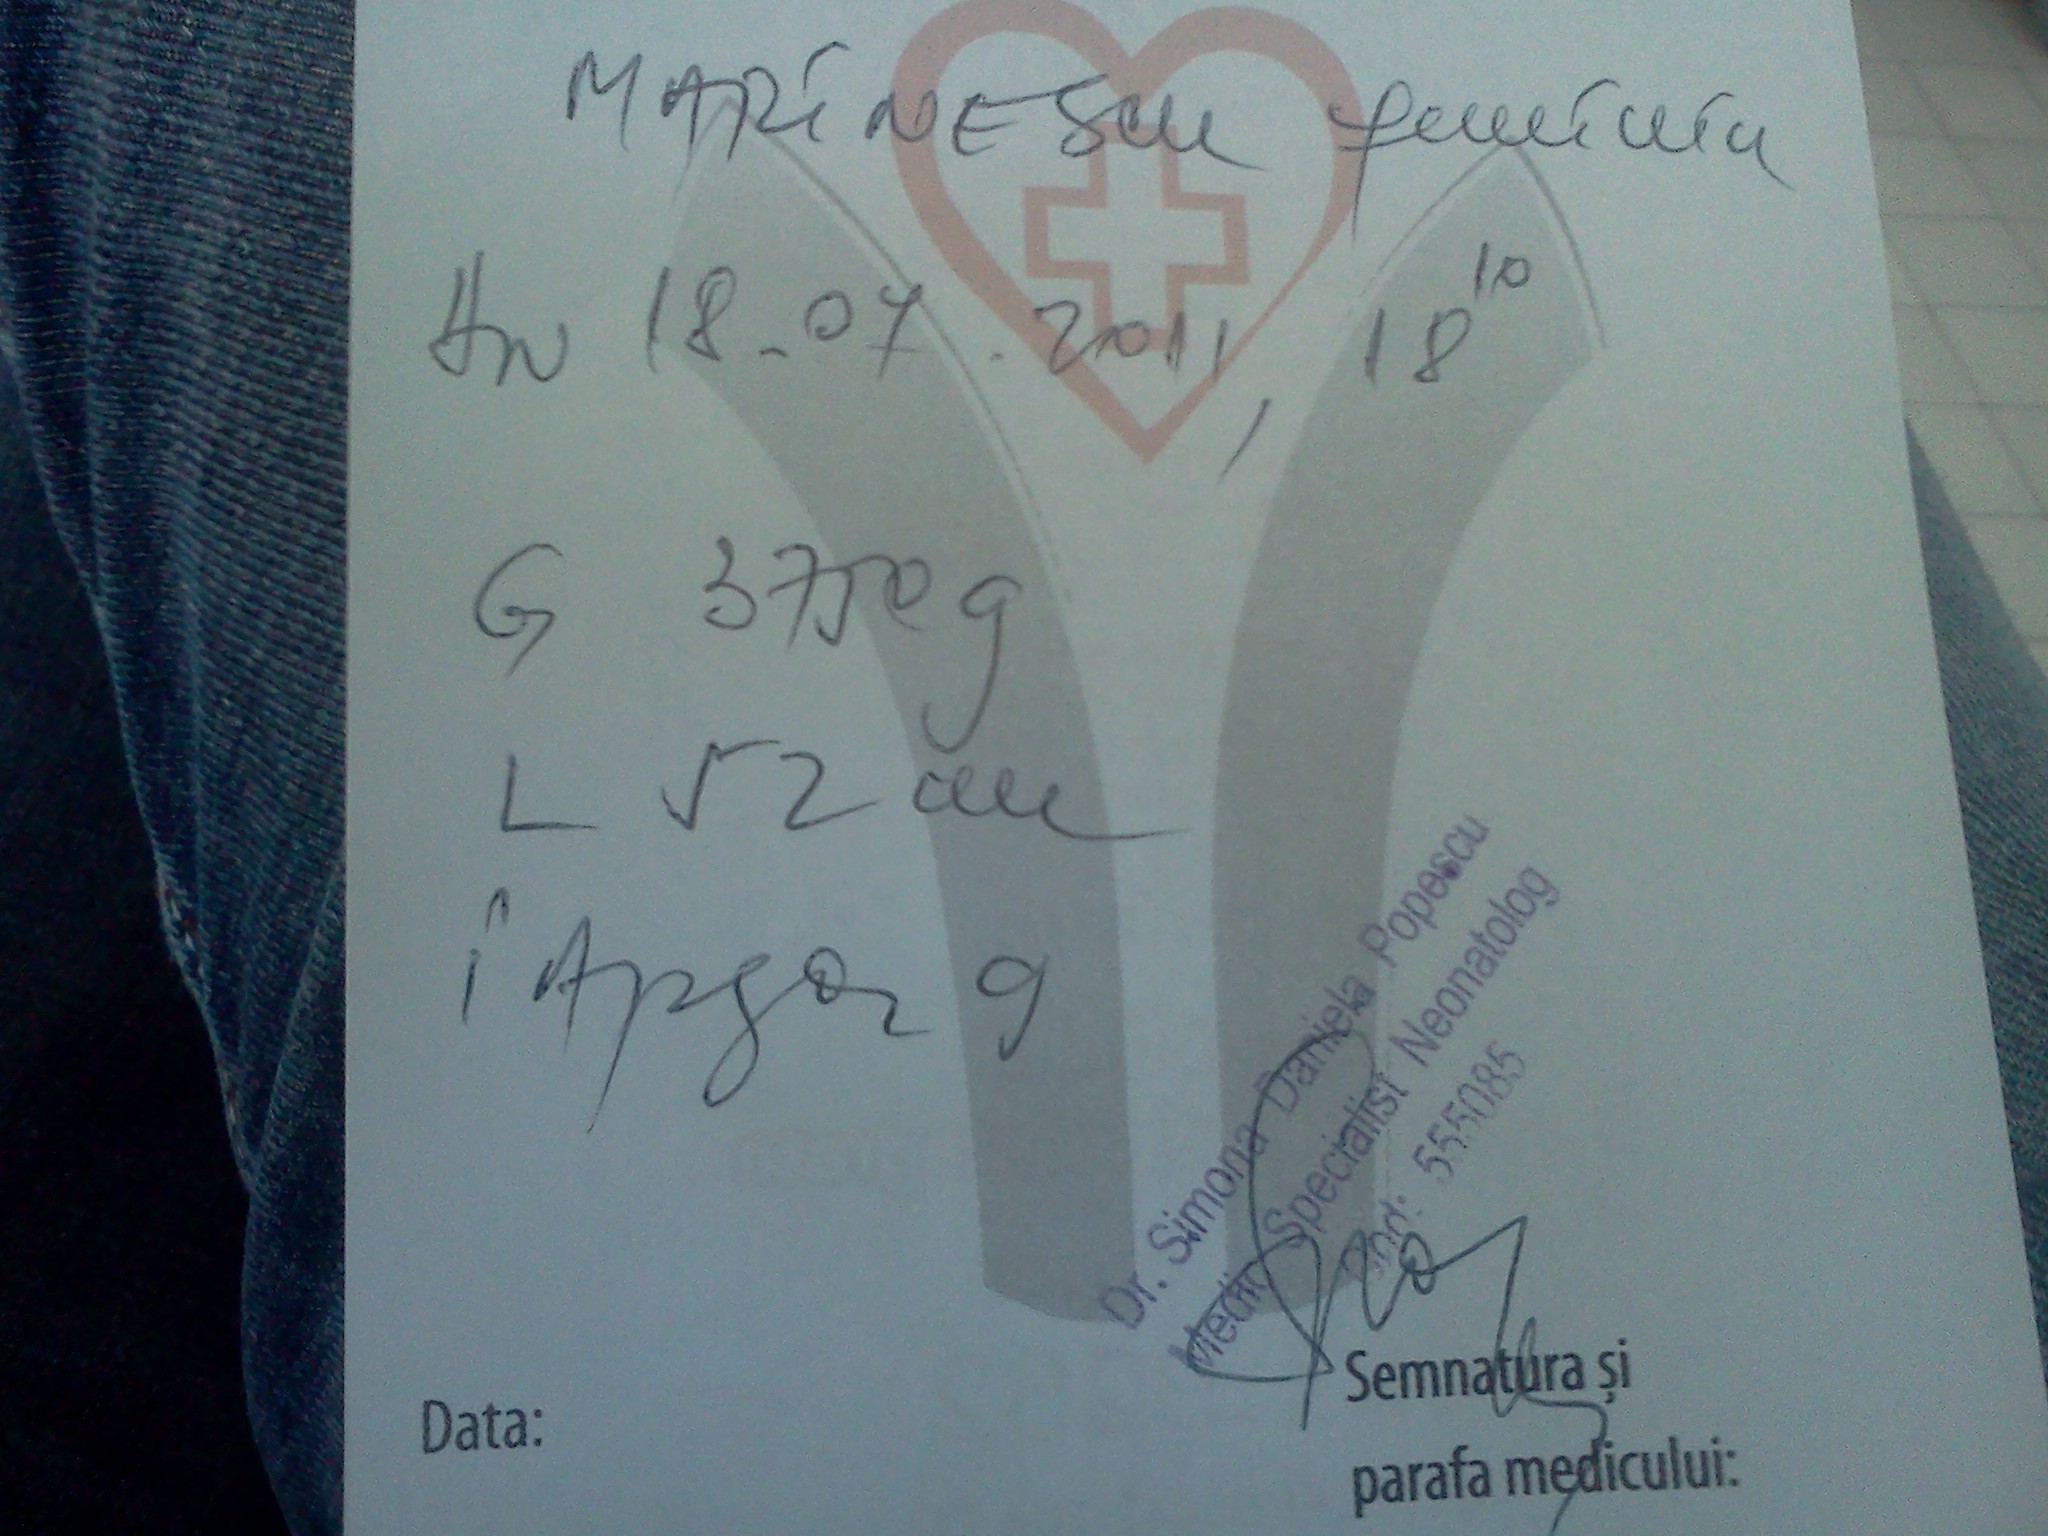 MARINESCU feminin
DN 18.07.2011, 18¹⁰
G 3750 g
L 52 cm
Î Apgar 9
Dr. Simona Daniela Popescu
Medic Specialist Neonatolog
cod: 555085
Semnatura și
parafa medicului:
Data: